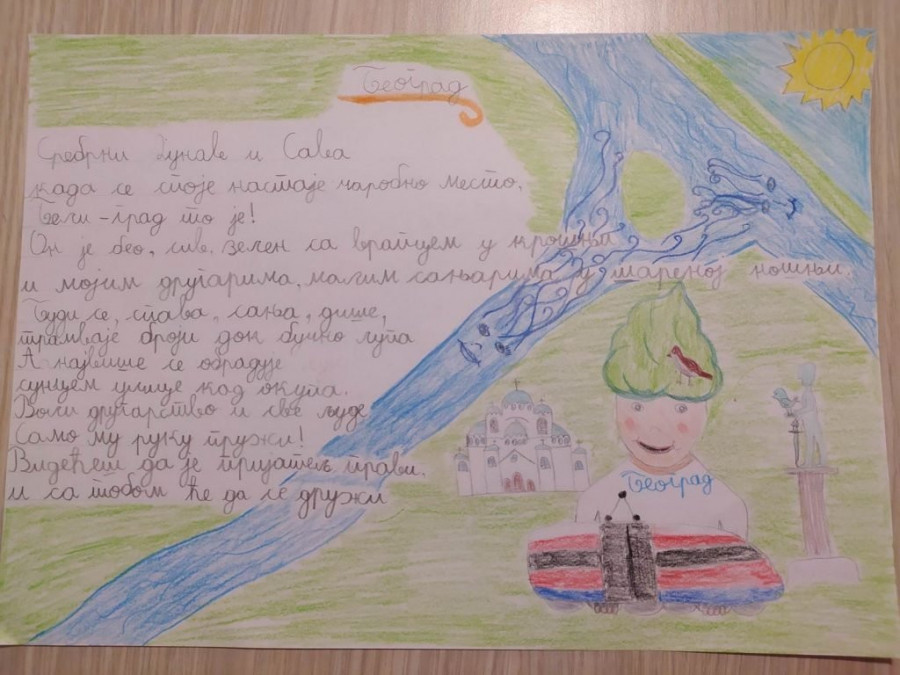 Београд
Сребрни Дунаве и Сава
када се споје настаје чаробно место,
Бели-град то је!
Он је бео, сив, зелен са врапцем у крошњи
и мојим другарима, малим сањарима у шареној ношњи.
Буди се, спава, сања, дише,
трамваје броји док бучно лупа
А највише се обрадује
сунцем улице кад окупа.
Воли другарство и све људе
Само му руку пружи!
Видећеш да је пријатељ прави,
и са тобом ће да се дружи
Београд